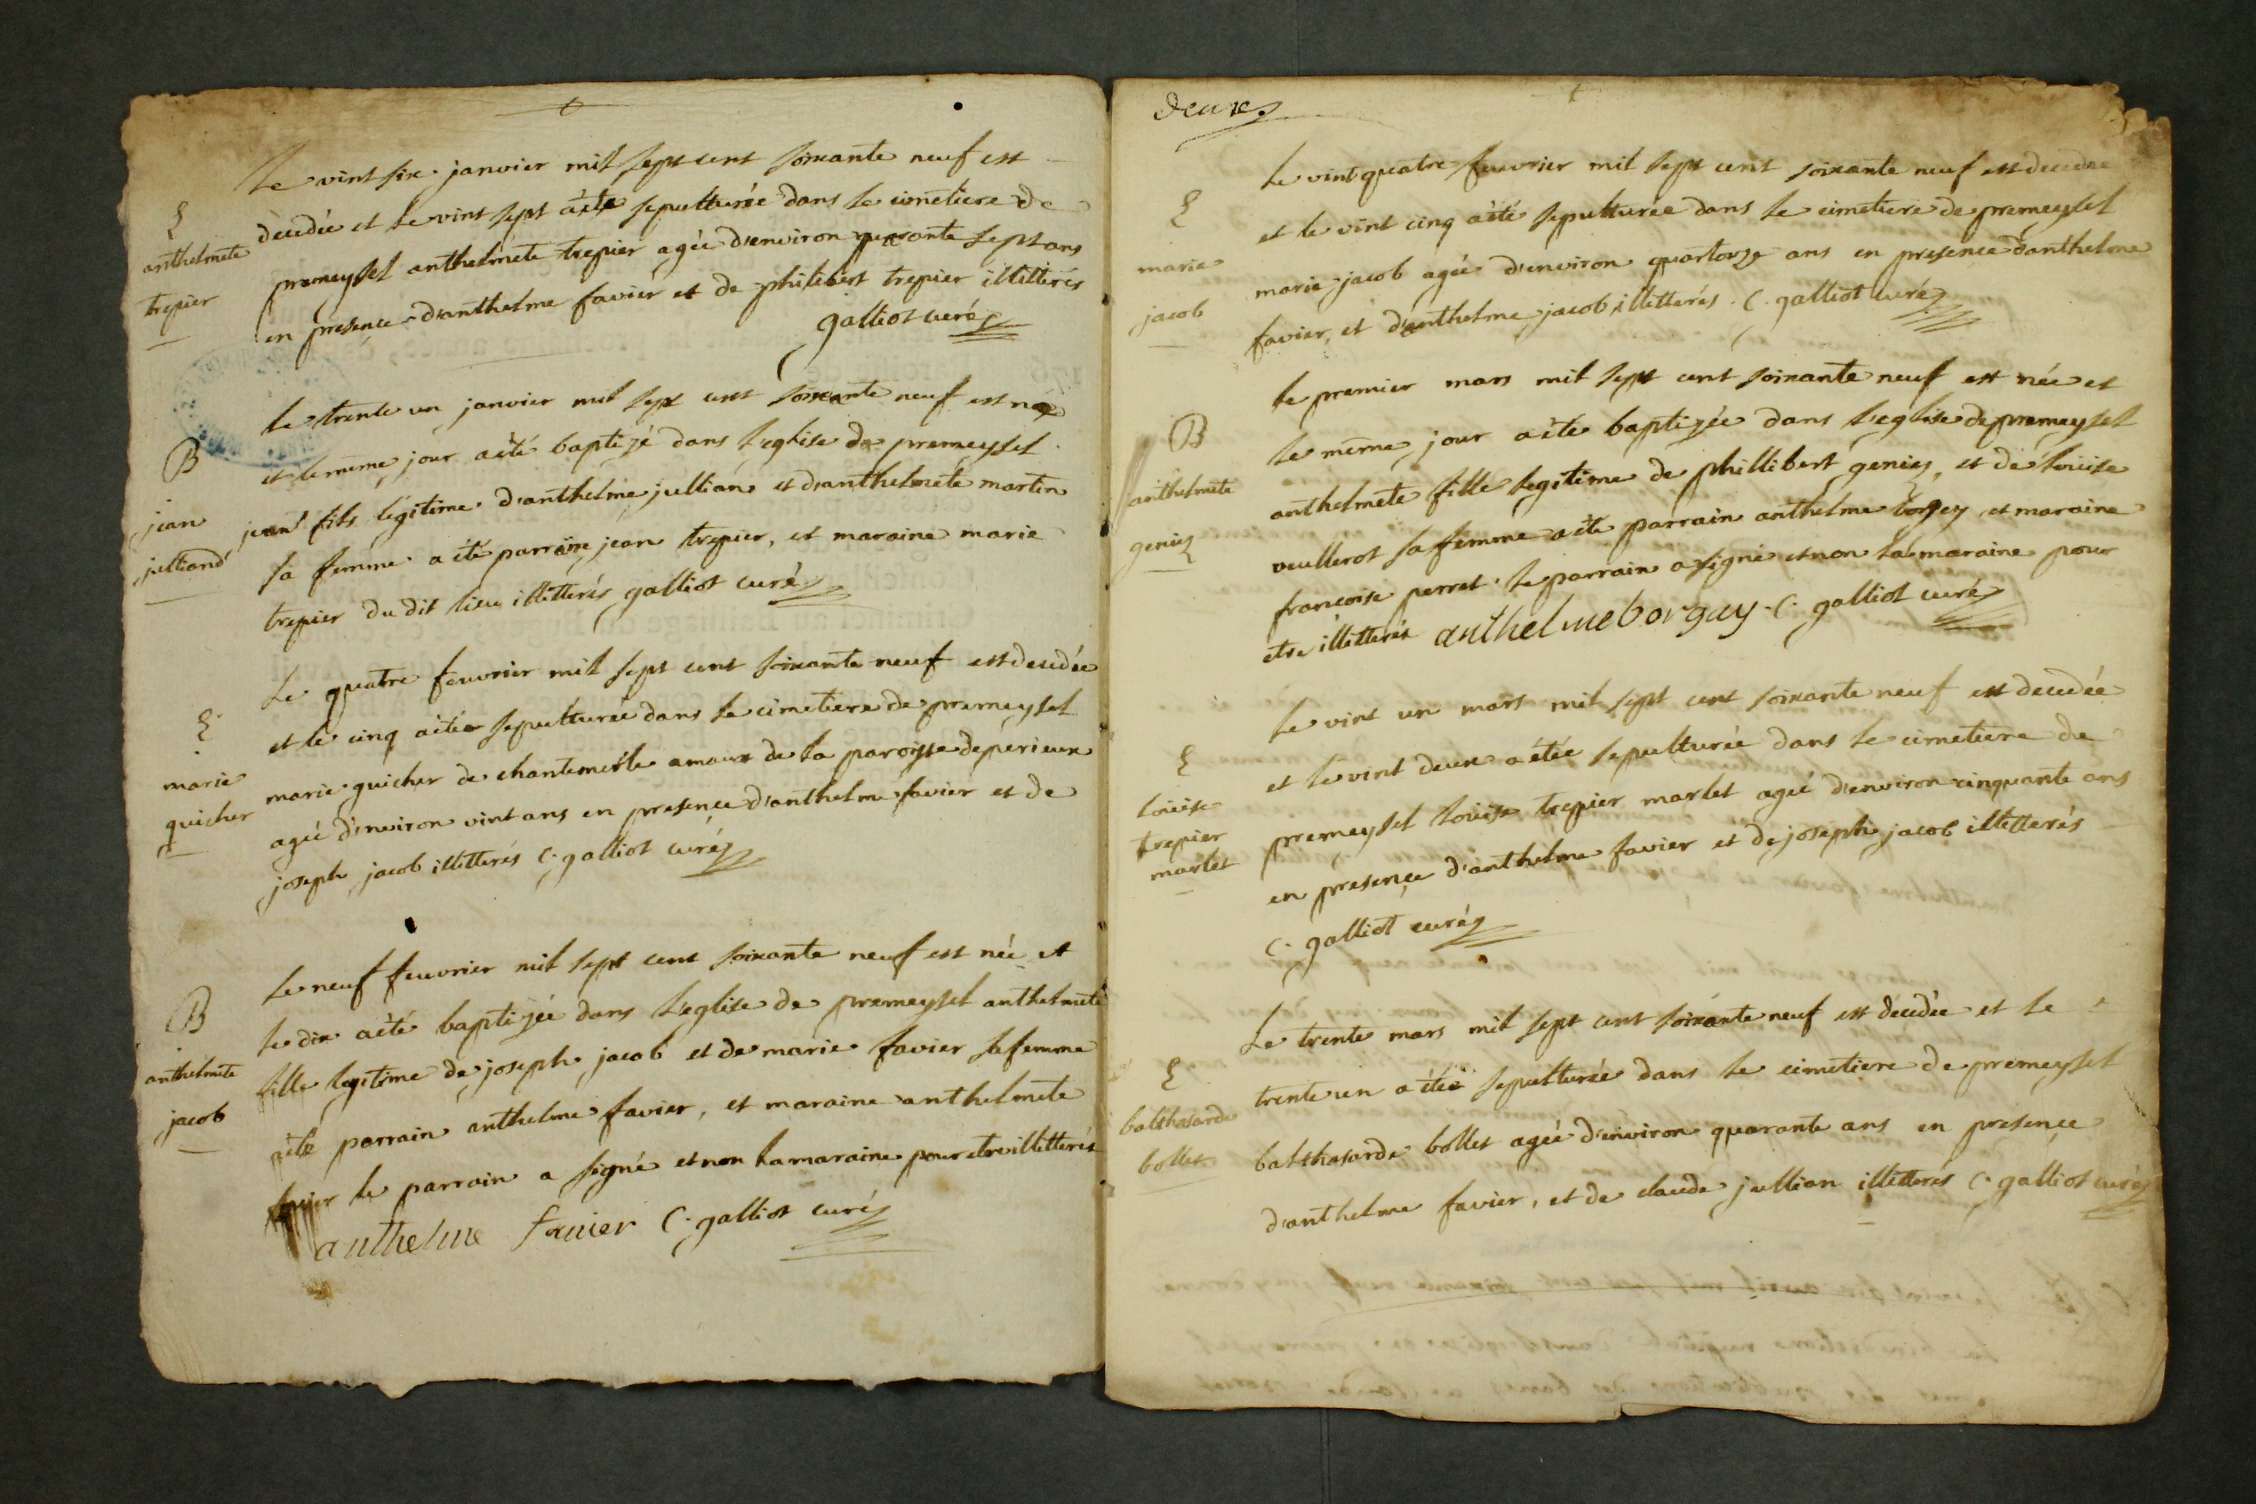 Le vint six janvier mil sept cent soixante neuf est
décedée et le vint sept a été sepulturée dans le cimetiere de
premeysel anthelmete trepier agée d'environ sept ans
en presence d'anthelme favier et de philibert trepier illitterés
galliot curé
anthelmete
trepier
Le trente un janvier mil sept cent soixante neuf est né
et le même jour a été baptizé dans l'eglise de premeysel
jean fils légitime d'anthelme jullian et d'anthelmete martin
sa femme a été parrain jean trepier, et maraine marie
trepier du dit lieu illitterés galliot curé
B
jean
julliand
Le quatre feuvrier mil sept cent soixante neuf est decedée
et le cinq a étée sepulturée dans le cimetiere de premeysel
marie guicher de chantemerle de la paroisse de perieux
agée d'environ vint ans en presence d'anthelme favier et de
joseph jacob illitterés C. galliot curé
marie
guicher
Le neuf feuvrier mil sept cent soixante neuf est née et
le dix a été baptizée dans l'eglise de premeysel anthelmete
fille legitime de joseph jacob et de marie favier sa femme
a été parrain anthelme favier, et maraine anthelmete
le parrain a signé et non la maraine pour etre illitterée
anthelme favier C. galliot curé
B
anthelmete
jacob
deux
Le vint quatre feuvrier mil sept cent soixante neuf est decedée
et le vint cinq a été sepulturée dans le cimetiere de premeysel
marie jacob agée d'environ quartorze ans en presence d'anthelme
favier, et d'anthelme jacob illetterés. C. galliot curé
marie
jacob
le premier mars mil sept cent soixante neuf est née et
le même jour a été baptizée dans l'eglise de premeysel
anthelmete fille legitime de phillibert geniez, et de loüise
veullerot sa femme a été parrain anthelme borgey et maraine
francoise perret. le parrain a signé et non la maraine pour
etre illetterée anthelme borgay C. galliot curé
B
anthelmete
geniez
Le vint un mars mil sept cent soixante neuf est decedée
et le vint deux a étée sepulturée dans le cimetiere de
premeysel loüise trepier marlet agée d'environ cinquante ans
en presence d'anthelme favier et de joseph jacob illetterés
C. galliot curé
loüise
trepier
marlet
Le trente mars mil sept cent soixante neuf est decedée et le
trente un a étée sepulturée dans le cimetiere de premeysel
balthasarde bollet agée d'environ quarante ans en presence
d'anthelme favier, et de claude jullian illetterés C. galliot curé
balthasarde
bollet